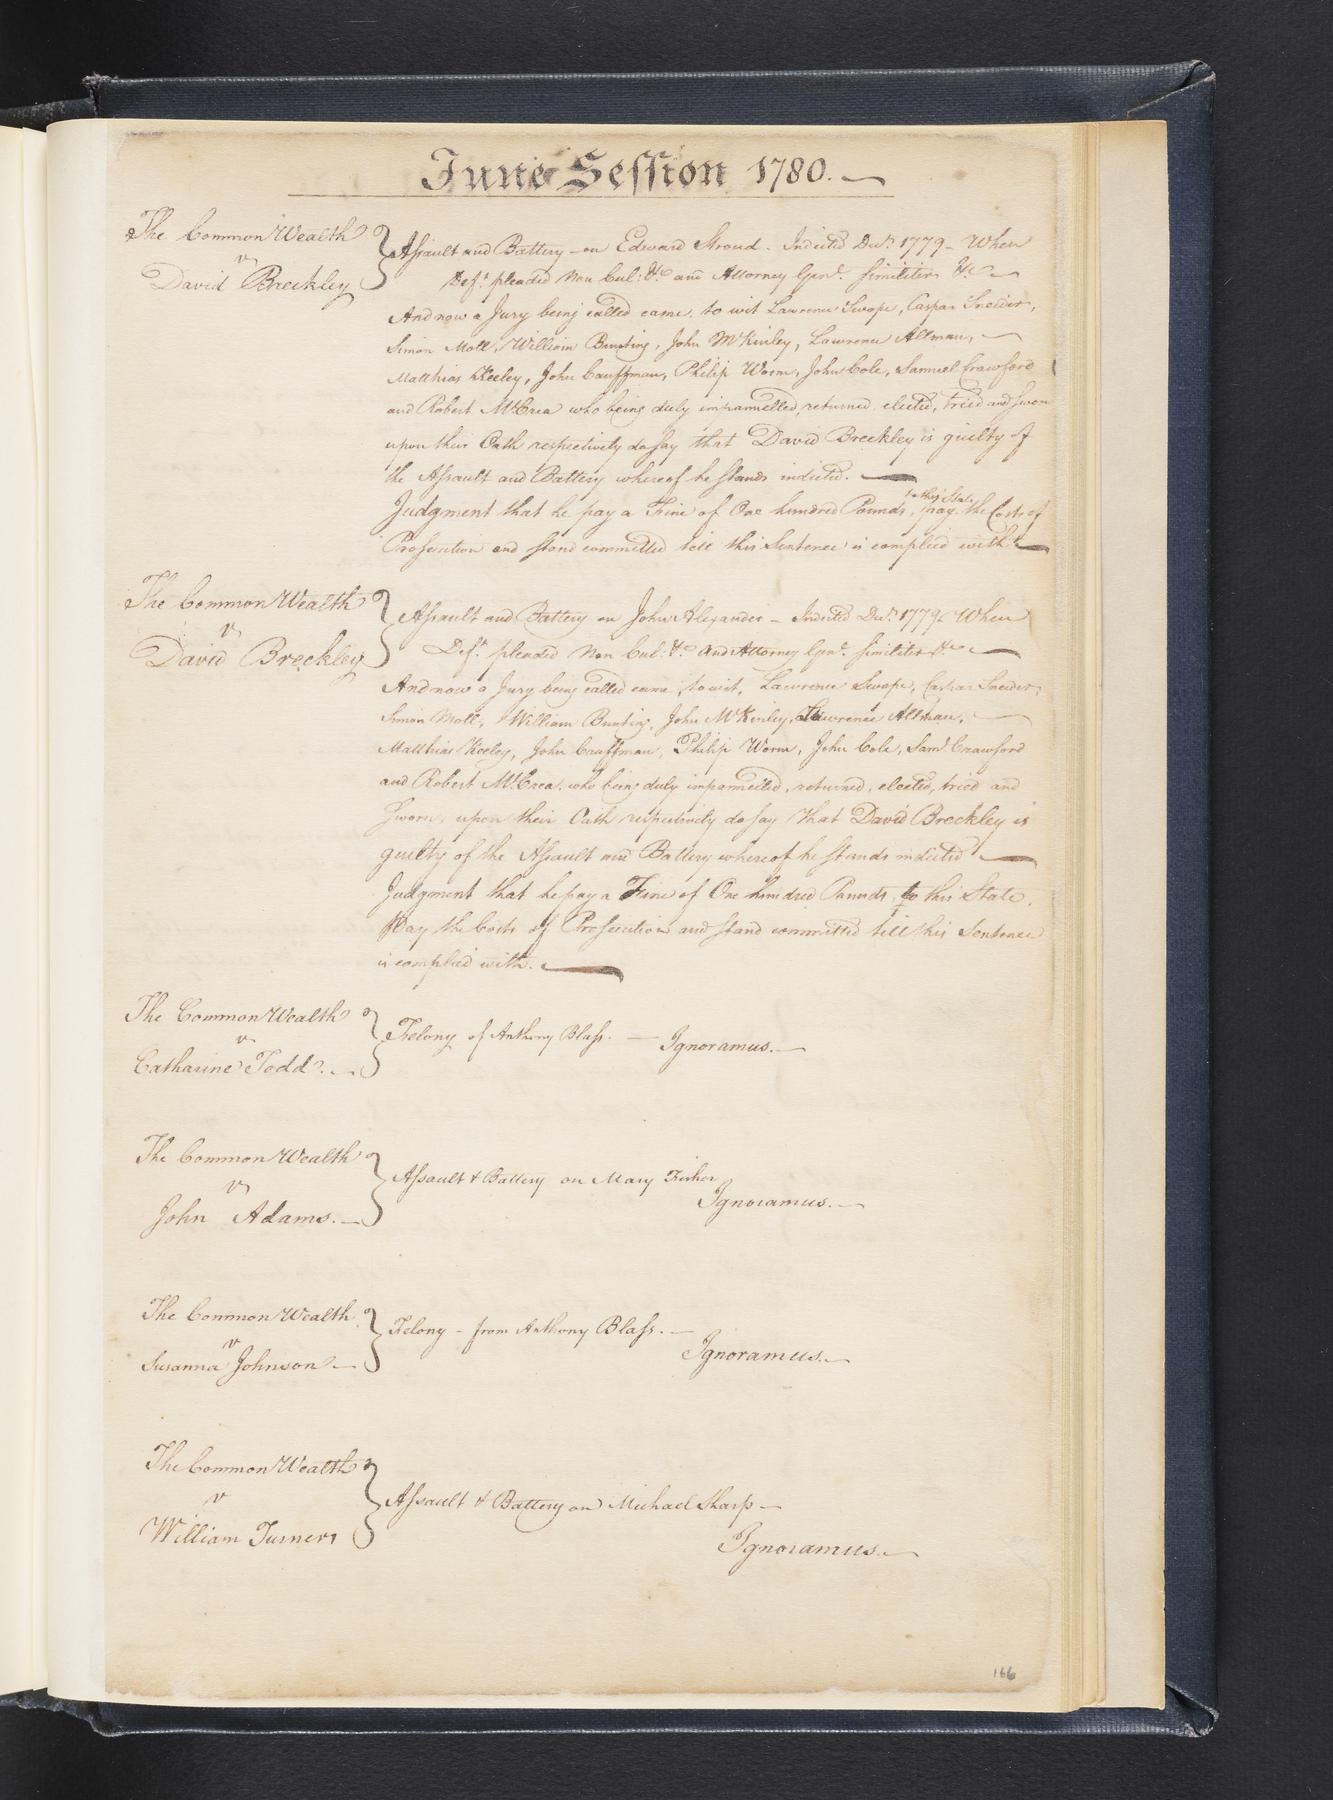 June Session 1780.
The CommonWealth
v
David Breckley
Assault and Battery - on Edward Stroud. Indicted Decr. 1779 - When
Deft. pleaded Non Cul: &c and Attorney Genl. similiter &c
And now a Jury being called came, to wit Lawrence Swope, Caspar Sneider,
Simon Moll, William Bunting, John McKinley, Lawrence Altman,
Matthias Keeley, John Cauffman, Philip Worm, John Cole, Samuel Crawford
and Robert McCrea who being duly impannelled, returned, elected, tried and sworn
upon their Oath respectively do say that David Breckley is guilty of
the Assault and Battery whereof he stands indicted.
to this State
Judgment that he pay a Fine of One hundred Pounds, pay the Costs of
Prosecution and stand committed till this Sentence is complied with
The CommonWealth
v
David Breckley
Assault and Battery on John Alexander - Indicted Decr. 1779 When
Deft. pleaded Non Cul: &c. And Attorney Genl. similiter &c
And now a Jury being called came, to wit, Lawrence Swope, Caspar Sneider,
Simon Moll, William Bunting, John McKinley, Lawrence Altman,
Matthias Keeley, John Cauffman, Philip Worm, John Cole, Saml Crawford
and Robert McCrea, who being duly impannelled, returned, elected, tried and
sworn, upon their Oath respectively do say that David Breckley is
guilty of the Assault and Battery whereof he stands indicted
Judgment that he pay a Fine of One hundred Pounds to this State,
Pay the Costs of Prosecution and stand committed till this Sentence
is complied with.
The CommonWealth
v
Catharine Todd.
Felony of Anthony Blass. - Ignoramus.
The CommonWealth
v
John Adams.
Assault & Battery on Mary Fisher
Ignoramus.
The CommonWealth
v
Susanna Johnson
Felony - from Anthony Blass.
Ignoramus.
The CommonWealth
v
William Turner
Assault & Battery on Michael Sharp
Ignoramus.
166